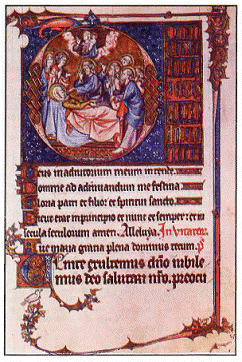 Deus in adiutorium meum in tende.
Domine ad adiuuandum me festina
Gloria patri et filio: et spiritui sancto.
Sicut erat in principio et nunc et semper: et in
secula seculorum amen. Alleluya. In
Aue maria gratia plena dominus tecum. P
Venite exultemus dño iubile
mus deo salutari nr̃o. preocu